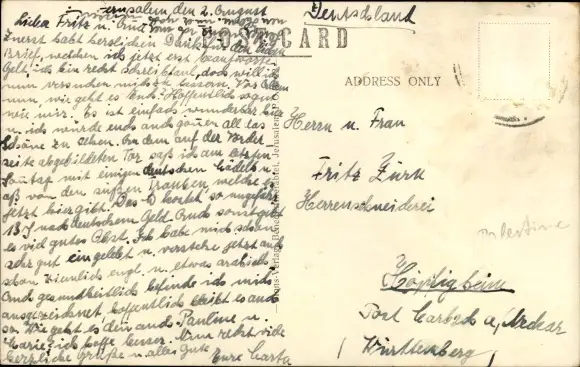 Jerusalem den 2. August
Lieber Fritz u.
Zuerst habt herzlichen Dank für den lieben
Brief, welchen ich jetzt erst beantworte.
Gelt, ich bin recht schreibfaul, doch will ich
nun versuchen mich zu bessern. Vor allem
nun, wie geht es Euch? Hoffentlich so gut
wie mir. Es ist einfach wunderbar hier
u. ich würde euch auch gönnen all das
Schöne zu sehen. An dem auf der Vorder
seite abgebildeten Tor saß ich am letzten
Sonntag mit einigen deutschen Mädels u.
aß von den süßen Trauben, welche es
jetzt hier gibt. Das kostet so ungefähr
13 nach deutschem Geld. Auch sonst gibt
es viel gutes Obst. Ich habe mich schon
sehr gut eingelebt u. verstehe jetzt auch
schon ziemlich engl. u. etwas arabisch.
Auch gesundheitlich befinde ich mich
ausgezeichnet hoffentlich bleibt es auch
so. Wie geht es denn auch Pauline u.
Marie? ich hoffe besser. Nun recht viele
herzliche Grüße u. alles Gute
Eure Marta
Deutschland
POST CARD
ADDRESS ONLY
Herrn u. Frau
Fritz Zürn
Herrenschneiderei
Palestine
Höpfigheim
Post Marbach a/Neckar
(Württemberg)